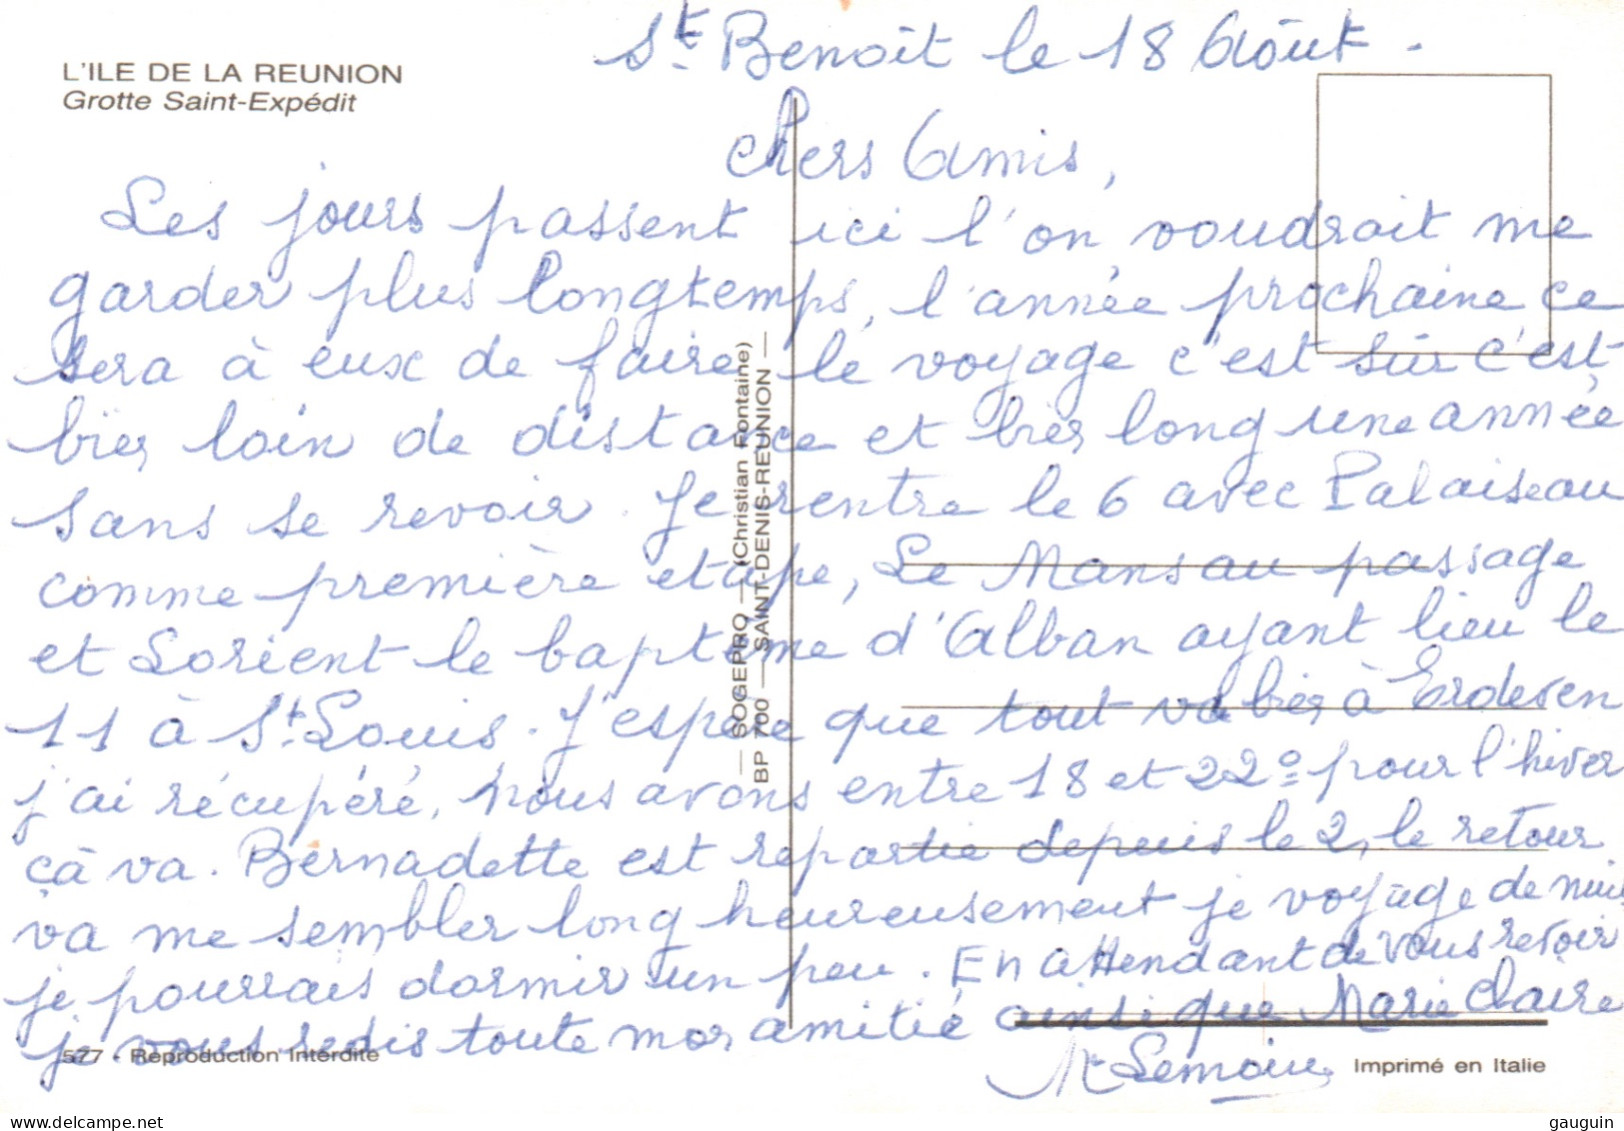 L'ILE DE LA REUNION
Grotte Saint-Expédit
St Benoît le 18 Août.
Chers Amis,
Les jours passent ici l'on voudrait me
garder plus longtemps, l'année prochaine ce
sera à eux de faire le voyage c'est sûr c'est
bien loin de distance et bien long une année
sans se revoir. Je rentre le 6 avec Palaiseau
comme première étape, Le Mans au passage
et Lorient le baptême d'Alban ayant lieu le
11 à St Louis. J'espère que tout va bien à Erdeven
j'ai récupéré, nous avons entre 18 et 22° pour l'hiver
çà va. Bernadette est repartie depuis le 2, le retour
va me sembler long heureusement je voyage de nuit
je pourrais dormir un peu. En attendant de vous revoir
je vous redis toute mon amitié ainsi que Marie Claire
Lemoine
SOGEPRO — (Christian Fontaine)
BP 700 — SAINT-DENIS-REUNION —
577 - Reproduction Interdite
Imprimé en Italie
delcampe.net
gauguin